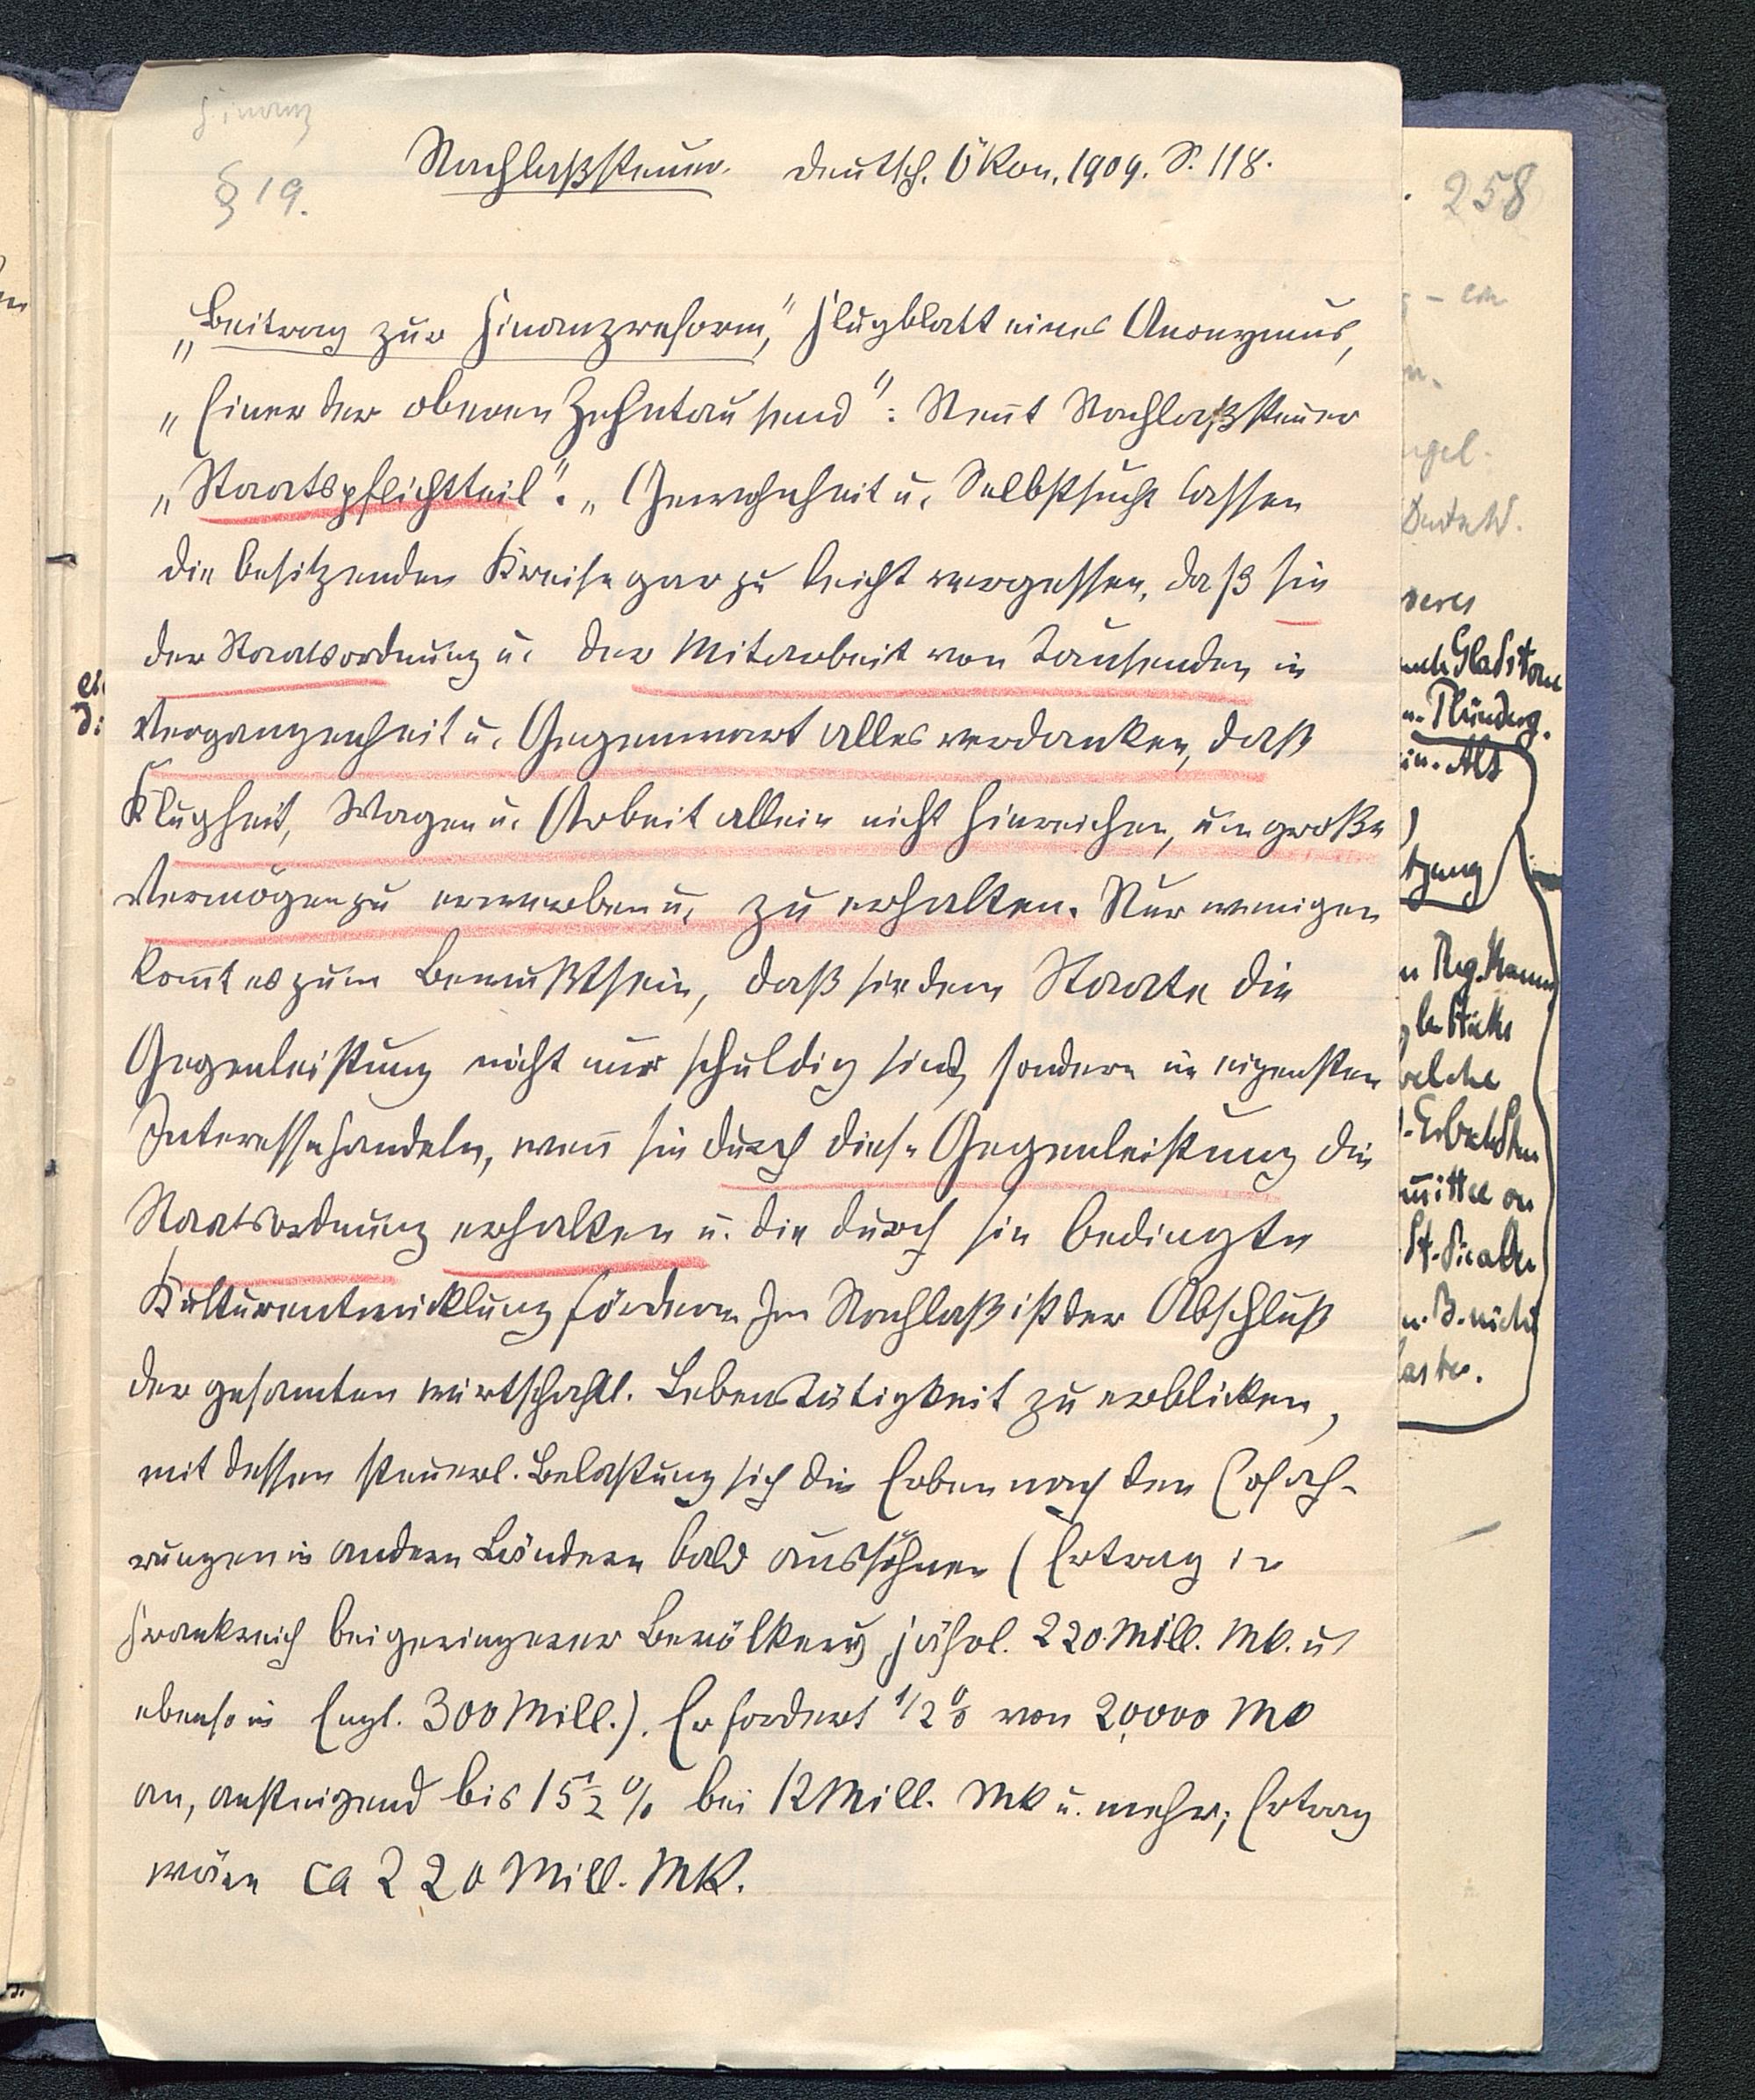 Finanz
§ 19.
Nachlaßsteuer. Deutsch. Ökon. 1909. S. 118.
„Beitrag zur Finanzreform," Flugblatt eines Anonymus,
„Einer der oberen Zehntausend": Nen̄t Nachlaßsteuer
„Staatspflichtteil". „Gewohnheit u. Selbstsucht lassen
die besitzenden Kreise gar zu leicht vergessen, daß sie
der Staatsordnung u. der Mitarbeit von Tausenden in
Vergangenheit u. Gegenwart alles verdanken, daß
Klugheit, Wagen u. Arbeit allein nicht hinreichen, um große
Vermögen zu erwerben u. zu erhalten. Nur wenigen
kom̄t es zum Bewußtsein, daß sie dem Staate die
Gegenleistung nicht nur schuldig sind, sondern im eigensten
Interesse handeln, wen̄ sie durch diese Gegenleistung die
Staatsordnung erhalten u. die durch sie bedingte
Kulturentwicklung fördern. Im Nachlaß ist der Abschluß
der gesamten wirtschaftl. Lebenstätigkeit zu erblicken,
mit dessen steuerl. Belastung sich die Erben nach den Erfah-
rungen in andern Ländern bald aussöhnen (Ertrag in
Frankreich bei geringerer Bevölkerg jährl. 220 Mill. Mk. u.
ebenso in Engl. 300 Mill.). Er fordert 1/2 % von 20,000 Mk
an, ansteigend bis 15 1/2 % bei 12 Mill. Mk u. mehr; Ertrag
wäre ca 220 Mill. Mk.
258
Gladstone
Plünderg.
welche